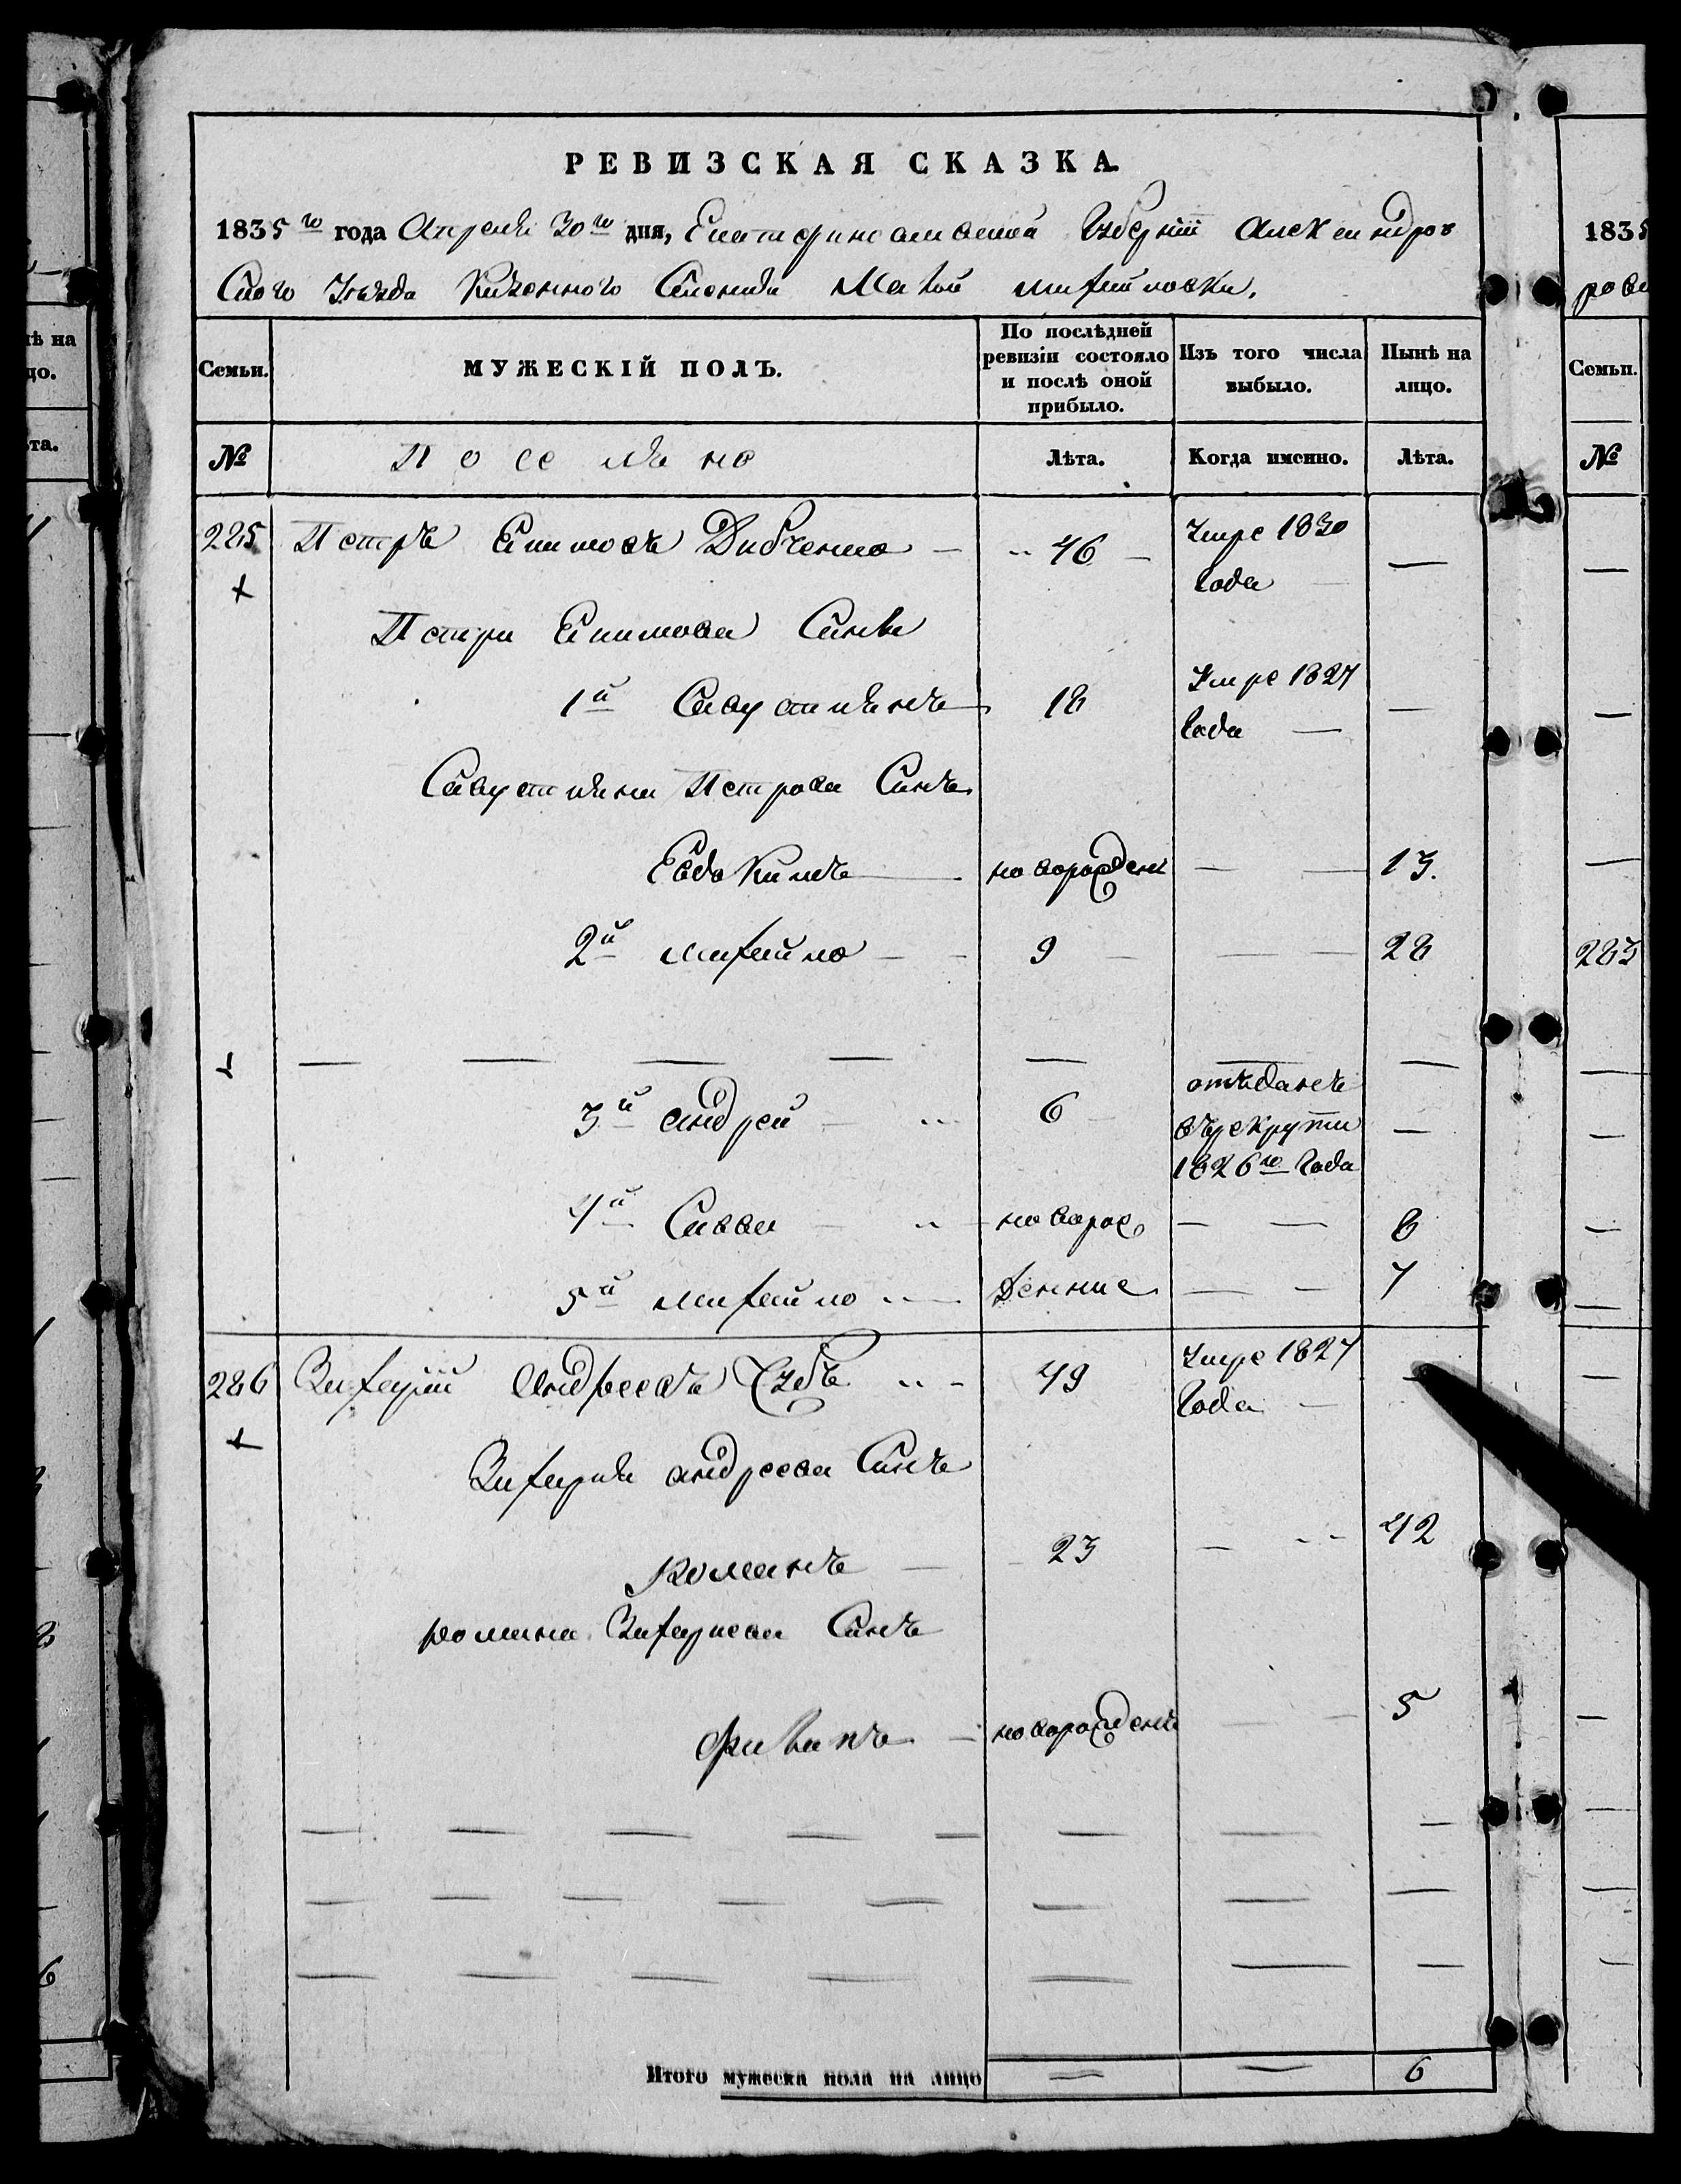 РЕВИЗСКАЯ СКАЗКА.
1835 го года Апреля 30 го дня, Екатеринославской Губернии Александров
Ского Уезда Казенного Селения Малой михайловки.
Семьи. МУЖЕСКІЙ ПОЛЪ. По послѣдней ревизіи состояло и послѣ оной прибыло. Изъ того числа выбыло. Нынѣ на лицо.
№ Поселяне Лѣта. Когда именно. Лѣта.
285 Петръ Епимовъ Дибченко 46 Умре 1830 Года —
Петра Епимова Сины
1й Савустиянъ 18 Умре 1827 Года —
Савустияна Петрова Синъ
Евдокимъ новорожденъ — 13.
2й михайло 9 — 28
3й андрей 6 отъданъ въ рекруты 1826 го Года —
4й Савва новорож — 8
5й михайло денние — 7
286 Захарій Андреевъ Чубъ 49 Умре 1827 Года —
Захария андреева Синъ
Романъ 23 — 42
романа Захариева Синъ
Филипъ новорожденъ — 5
Итого мужеска пола на лицо = — 6
1835
рове
Семьи.
№
283
ѣ на
цо.
та.